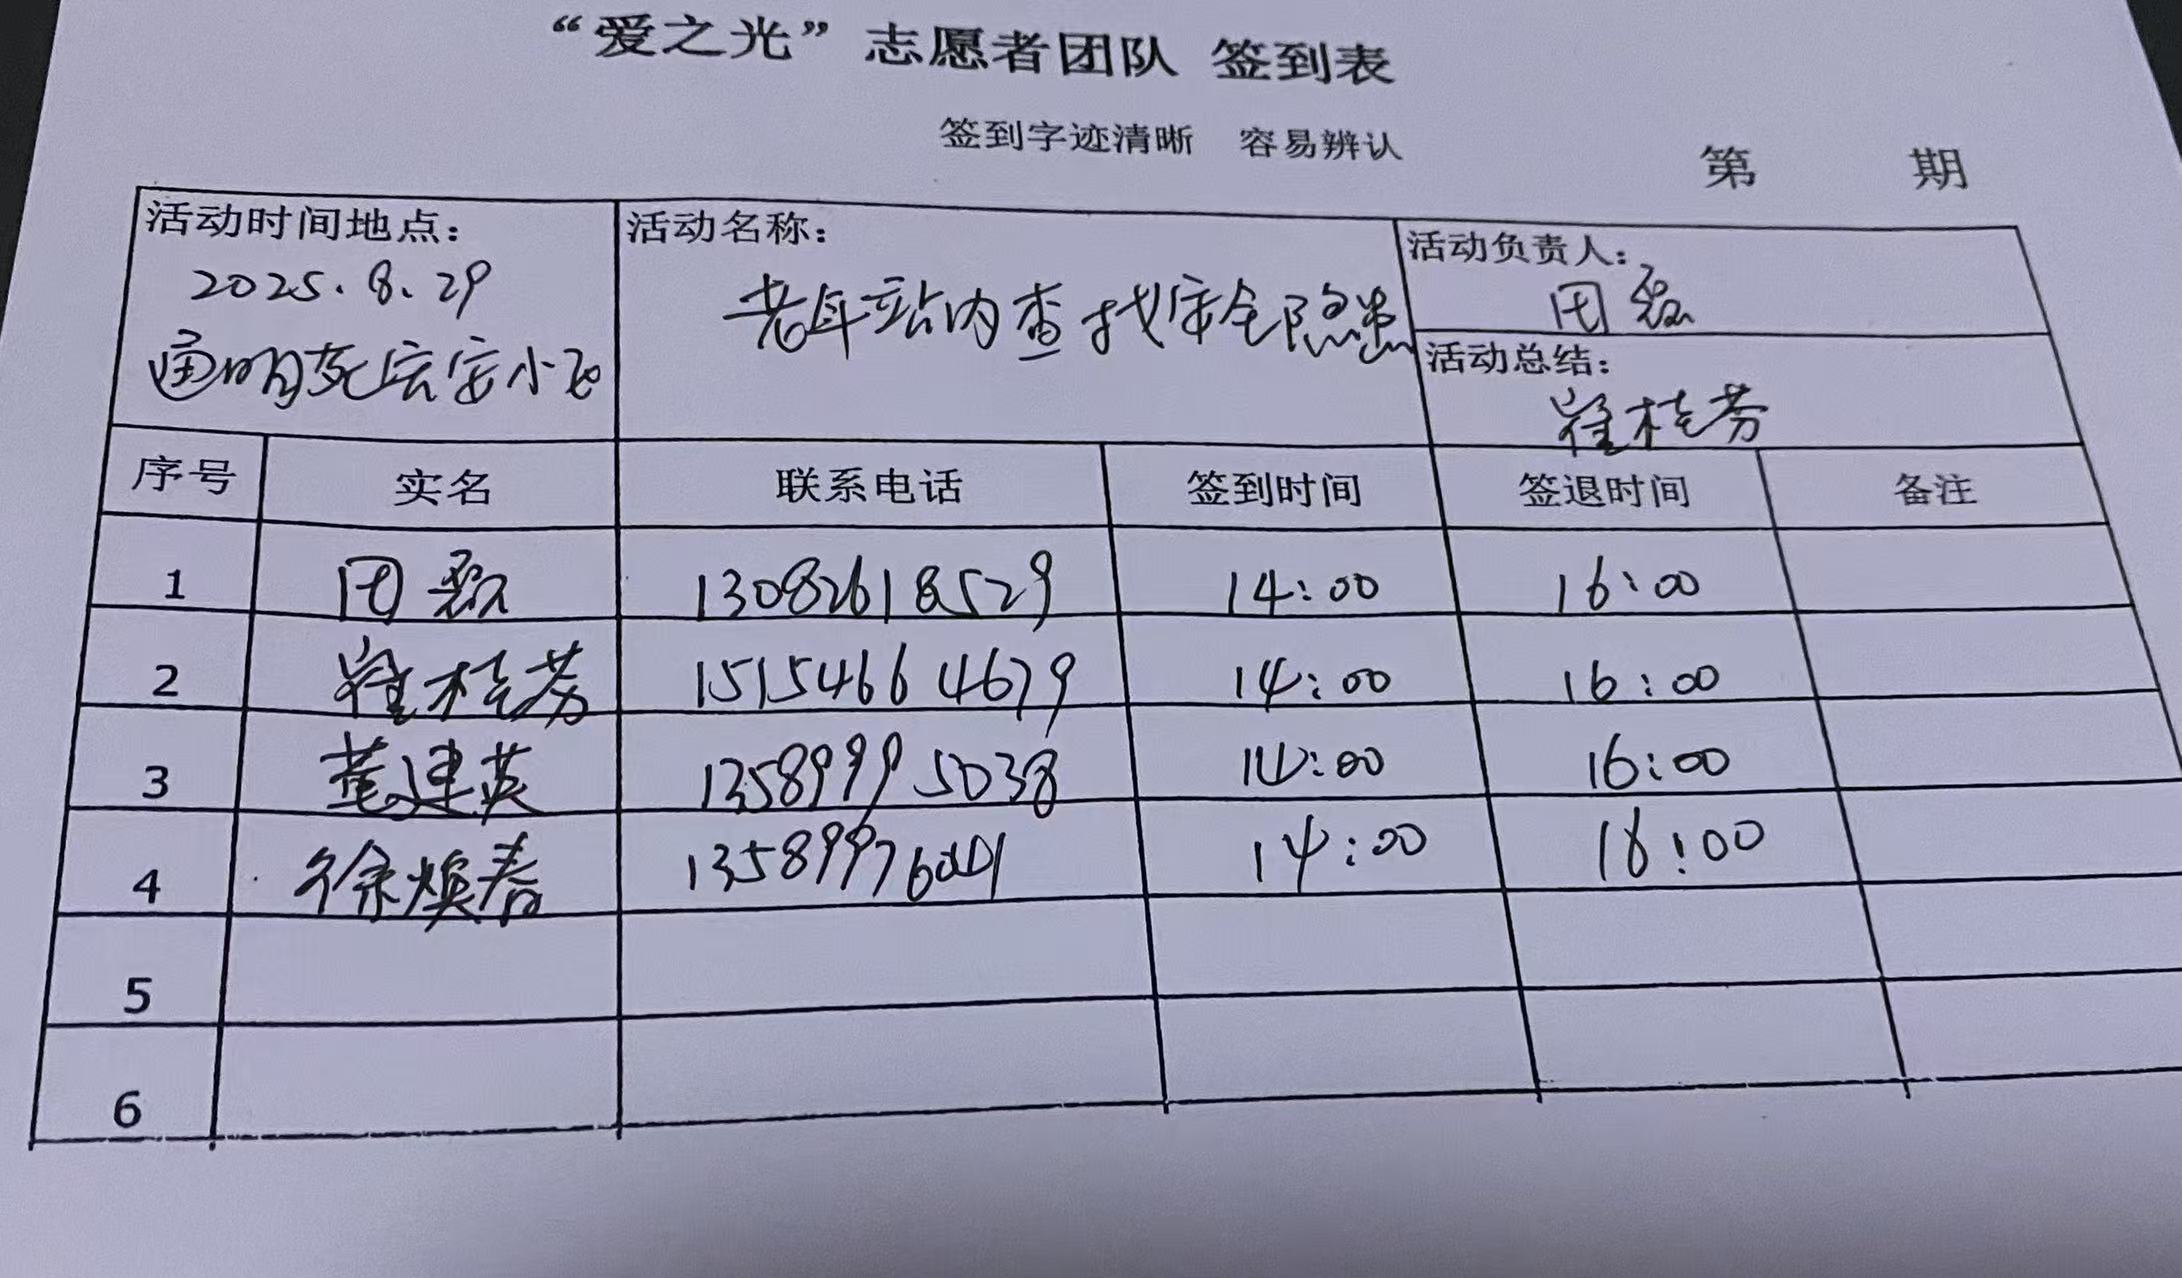 “爱之光”志愿者团队 签到表
签到字迹清晰 容易辨认
第 期
活动时间地点：
2025.8.29
宏安小区
活动名称：
老年站内查找安全隐患
活动负责人：
田磊
活动总结：
崔桂芬
序号 实名 联系电话 签到时间 签退时间 备注
1 田磊 13082618529 14:00 16:00
2 崔桂芬 15154664679 14:00 16:00
3 董建英 13589995038 14:00 16:00
4 徐焕春 14:00 16:00
5
6